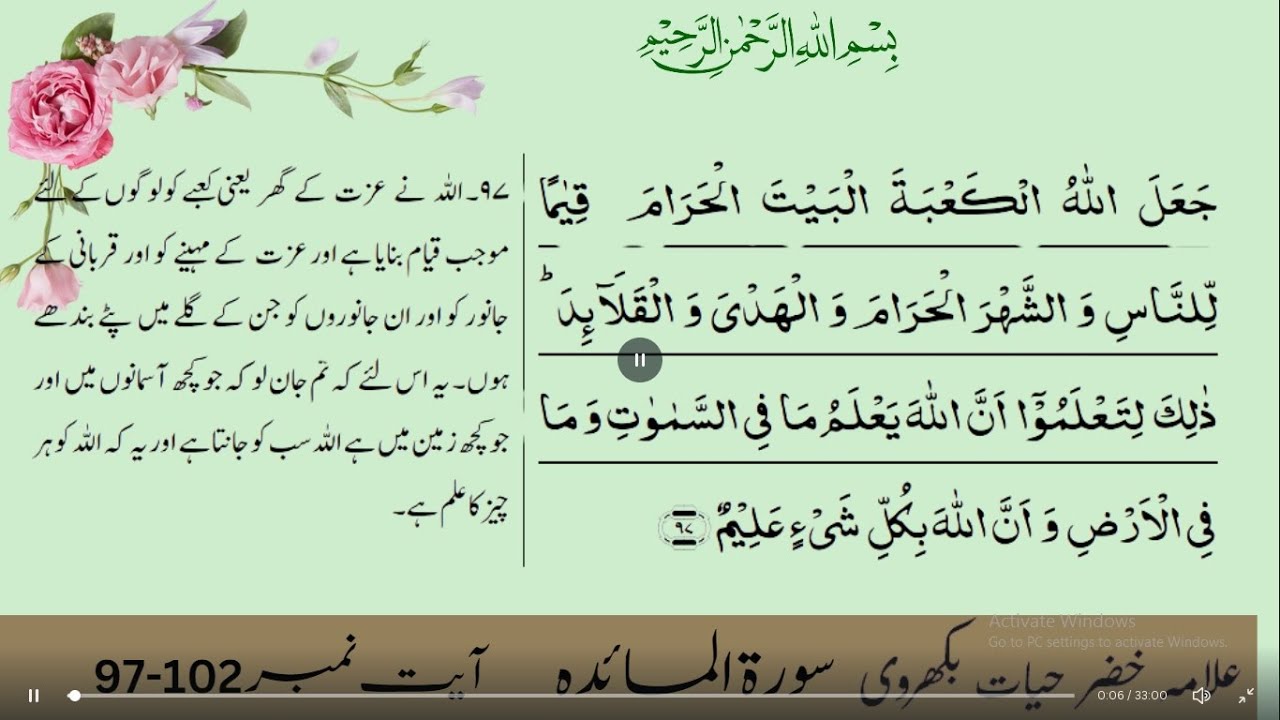 بِسْمِ اللهِ الرَّحْمٰنِ الرَّحِيْمِ
جَعَلَ اللهُ الْكَعْبَةَ الْبَيْتَ الْحَرَامَ قِيٰمًا
لِّلنَّاسِ وَ الشَّهْرَ الْحَرَامَ وَ الْهَدْىَ وَ الْقَلَآئِدَ ؕ
ذٰلِكَ لِتَعْلَمُوْۤا اَنَّ اللهَ يَعْلَمُ مَا فِى السَّمٰوٰتِ وَ مَا
فِى الْاَرْضِ وَ اَنَّ اللهَ بِكُلِّ شَىْءٍ عَلِيْمٌ ﴿۹۷﴾
۹۷۔ اللہ نے عزت کے گھر یعنی کعبے کو لوگوں کے لئے
موجب قیام بنایا ہے اور عزت کے مہینے کو اور قربانی کے
جانور کو اور ان جانوروں کو جن کے گلے میں پٹے بندھے
ہوں۔ یہ اس لئے کہ تم جان لو کہ جو کچھ آسمانوں میں اور
جو کچھ زمین میں ہے اللہ سب کو جانتا ہے اور یہ کہ اللہ کو ہر
چیز کا علم ہے۔
Activate Windows
Go to PC settings to activate Windows.
علامہ خضر حیات بکھروی سورۃ المائدہ آیت نمبر 97-102
0:06 / 33:00